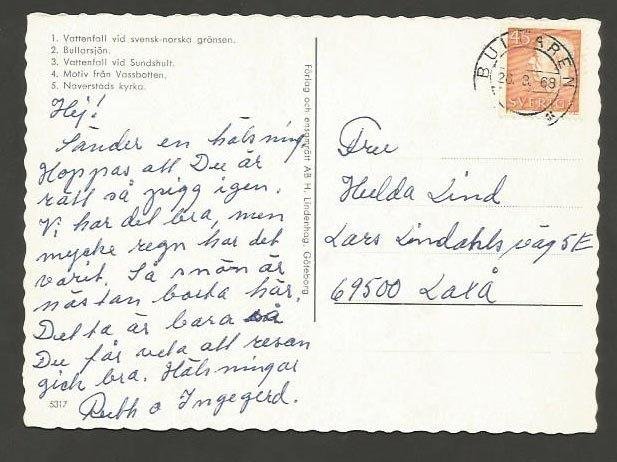 1. Vattenfall vid svensk-norska gränsen.
2. Bullarsjön.
3. Vattenfall vid Sundshult.
4. Motiv från Vassbotten.
5. Naverstads kyrka.
Hej!
Sänder en hälsning
Hoppas att Du är
rätt så pigg igen.
Vi har det bra, men
mycke regn har det
varit. Så snön är
nästan borta här.
Detta är bara så
Du får veta att resan
gick bra. Hälsningar
Ruth o Ingegerd.
5317
Förlag och ensamrätt AB H. Lindenhag, Göteborg
45
SVERIGE
BULLAREN
26. 3. 68
Fru
Hulda Lind
Lars Lindahls väg 5E
69500 Laxå